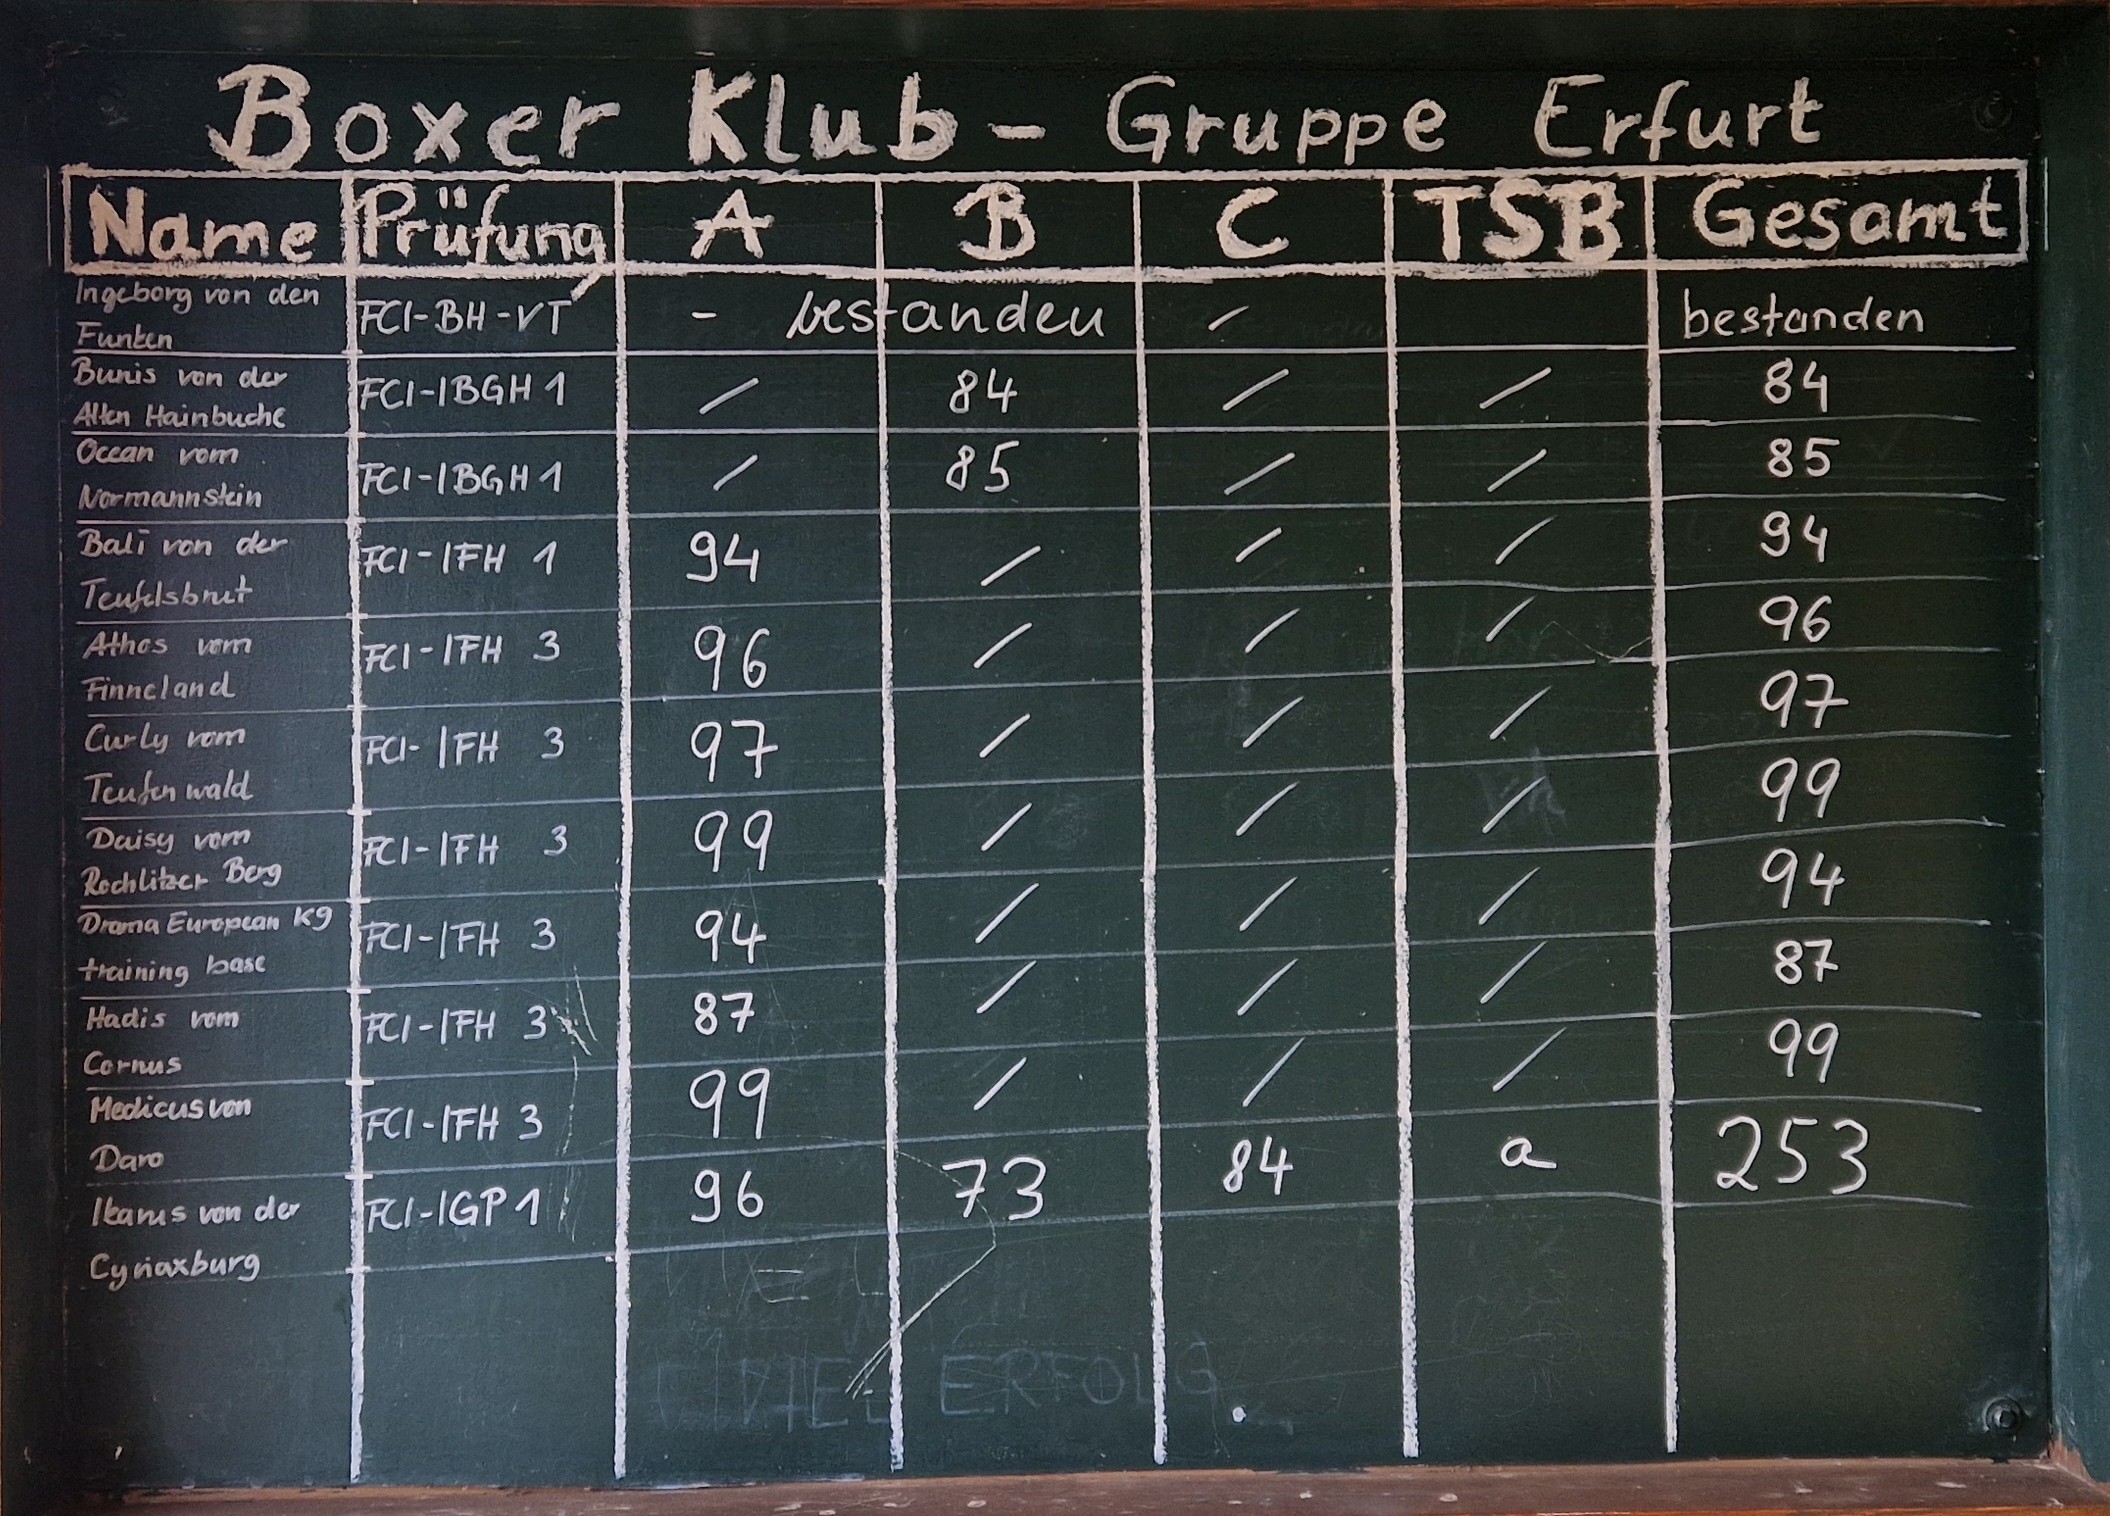 Boxer Klub - Gruppe Erfurt
Name Prüfung A B C TSB Gesamt
Ingeborg von den
Funken
FCI-BH-VT - bestanden / bestanden
Bunis von der
Alten Hainbuche
FCI-IBGH 1 / 84 / / 84
Ocean vom
Normannstein
FCI-IBGH 1 / 85 / / 85
Bali von der
Teufelsbrut
FCI-IFH 1 94 / / / 94
Athos vom
Finneland
FCI-IFH 3 96 / / / 96
Curly vom
Teufenwald
FCI-IFH 3 97 / / / 97
Daisy vom
Rochlitzer Berg
FCI-IFH 3 99 / / / 99
Drama European K9
training base
FCI-IFH 3 94 / / / 94
Hadis vom
Cornus
FCI-IFH 3 87 / / / 87
Medicus von
Daro
FCI-IFH 3 99 / / / 99
Ikarus von der
Cyriaxburg
FCI-IGP 1 96 73 84 a 253
VIEL ERFOLG